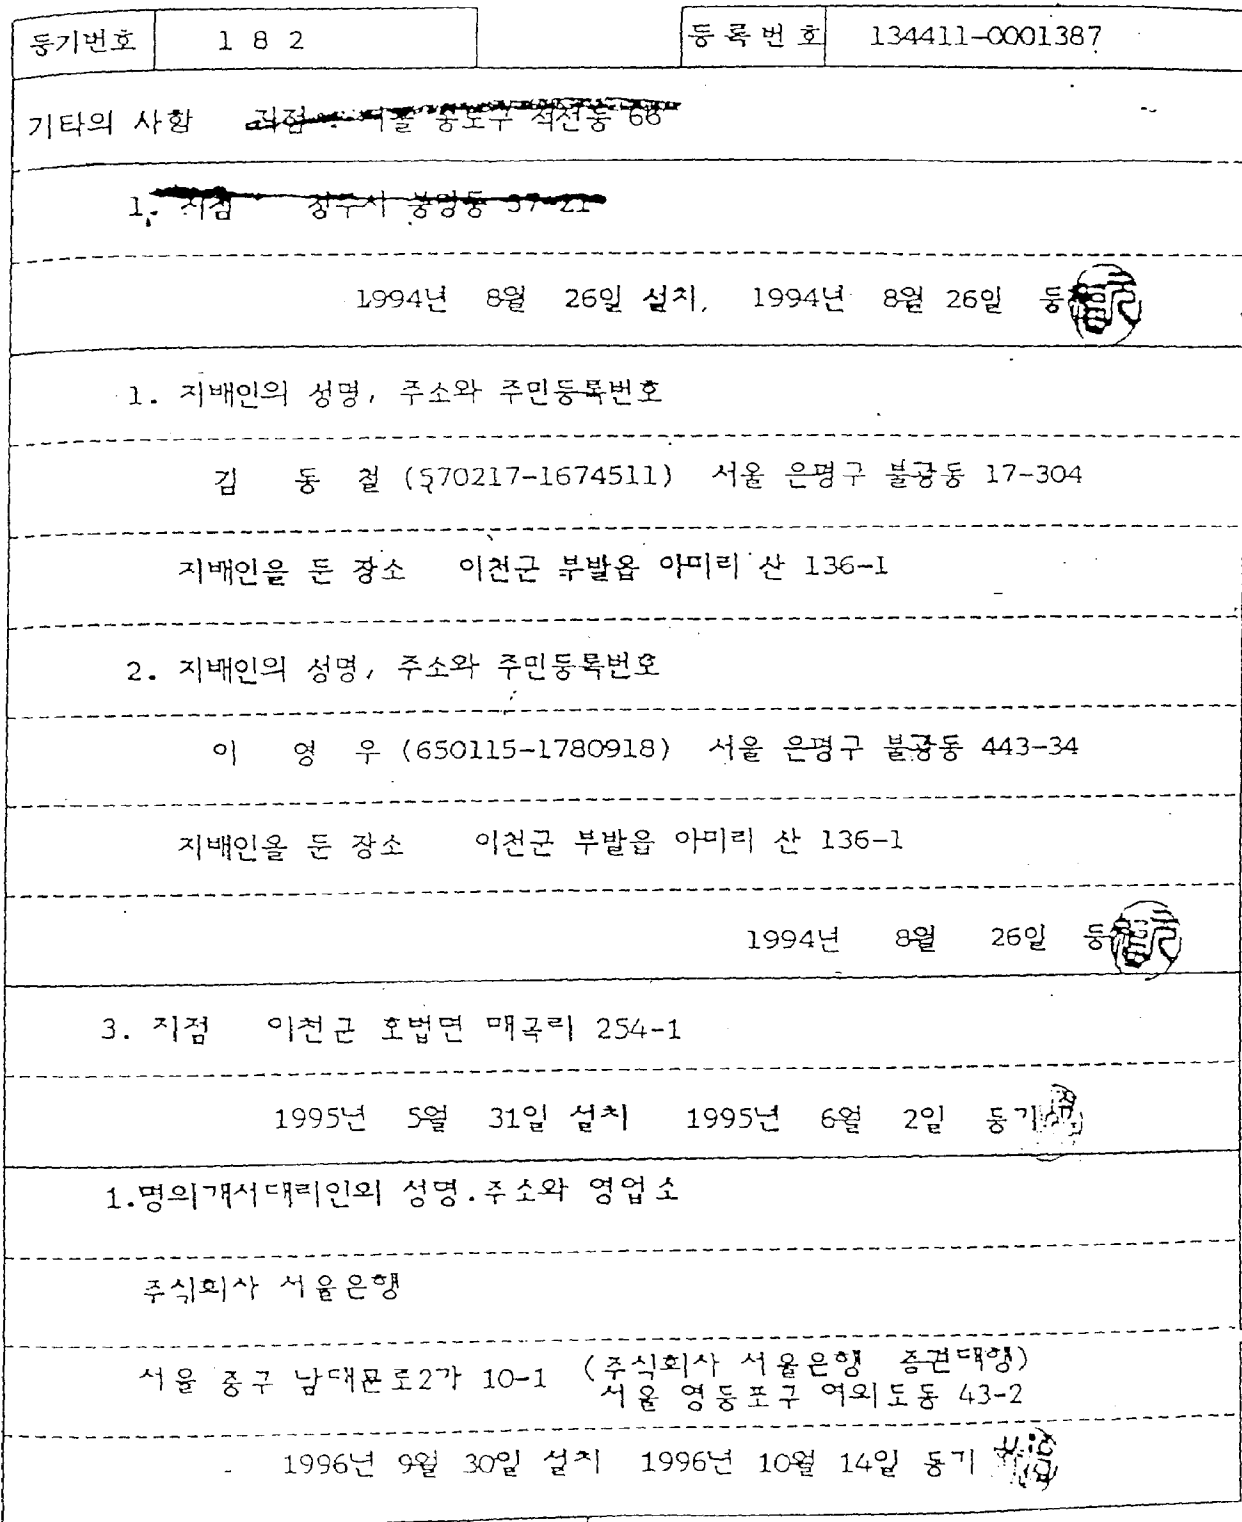 등기번호 1 8 2 등록번호 134411-0001387
기타의 사항 66
1. 지점 37-21
1994년 8월 26일 설치, 1994년 8월 26일 등
1. 지배인의 성명, 주소와 주민등록번호
김 동 철 (570217-1674511) 서울 은평구 불광동 17-304
지배인을 둔 장소 이천군 부발읍 아미리 산 136-1
2. 지배인의 성명, 주소와 주민등록번호
이 영 우 (650115-1780918) 서울 은평구 불광동 443-34
지배인을 둔 장소 이천군 부발읍 아미리 산 136-1
1994년 8월 26일 등
3. 지점 이천군 호법면 매곡리 254-1
1995년 5월 31일 설치 1995년 6월 2일 등기
1.명의개서대리인의 성명.주소와 영업소
주식회사 서울은행
서울 중구 남대문로2가 10-1 (주식회사 서울은행 증권대행)
서울 영등포구 여의도동 43-2
1996년 9월 30일 설치 1996년 10월 14일 등기